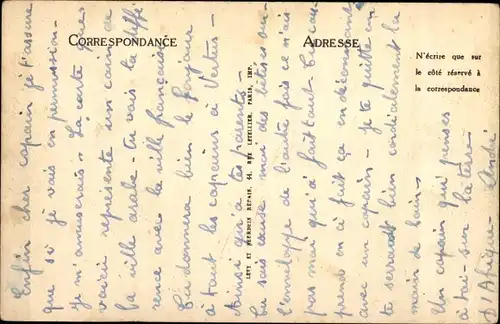 CORRESPONDANCE
ADRESSE
N'écrire que sur
le côté réservé à
la correspondance
LEVY ET NEURDEIN RÉUNIS, 44, RUE LETELLIER, PARIS, IMP.
Enfin cher copain je t'assure
que si je vais en permission
je m'amuserais. La carte que
voici représente un coin de
la ville arabe - tu vois la diffé
rence avec la ville française
Tu donnera bien le bonjour
à tout les copains à Vertus -
Ainsi qu'a tes parents -
tu sais cause moi des fêtes ou
l'enveloppe de l'autre fois ce n'ais
pas moi qu'a fait tout. Tu com-
prend on a fait ça en déconnant
avec un copain - je te quitte en
te serrant bien cordialement la
main de loin.
Un copain qui penses
à toi - sur la terre
d'Afrique - André